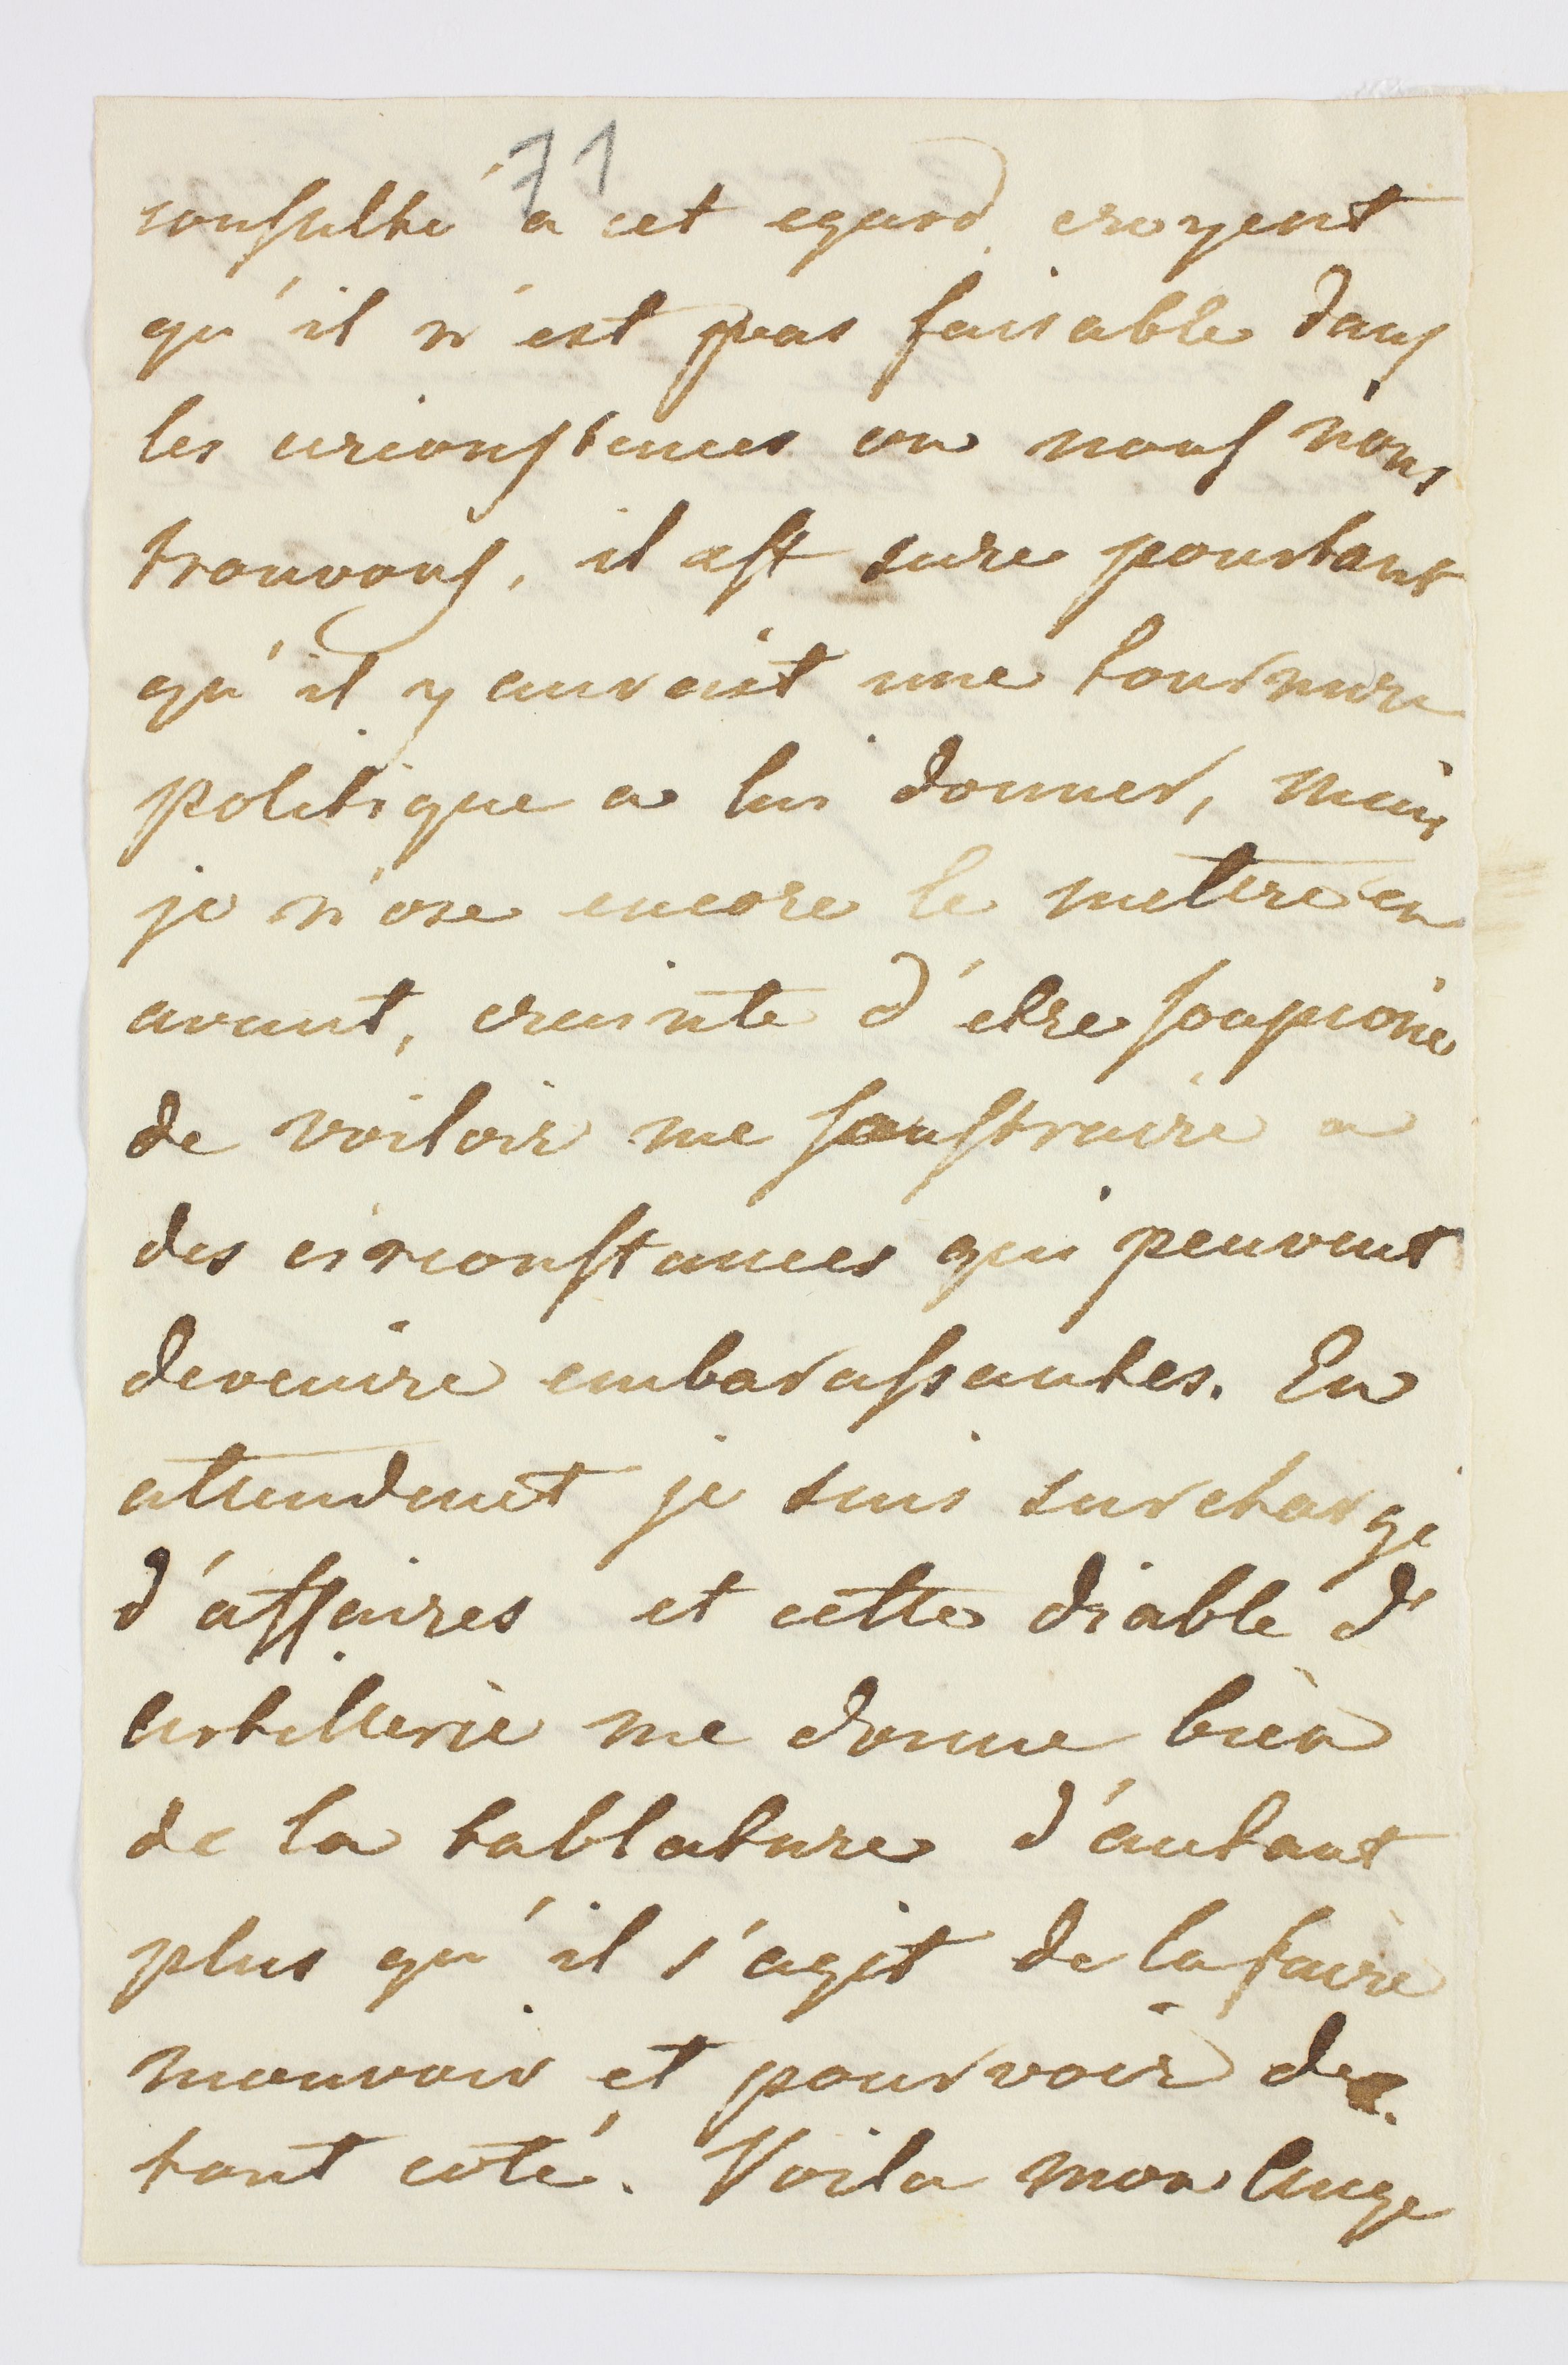 71
consulté a cet egard croyent
qu'il n'est pas faisable dans
les circonstences ou nous nous
trouvons, il est sure pourtant
qu'il y auroit une tournure
politique a lui donner, mais
je n'ose encore le mettre en
avant, creinte d'etre soupçoné
de voiloir me soustraire a
des circonstances qui peuvent
devenire embarassantes. En
attendent je suis surchargé
d'affaires et cette diable d'
Artillerie me donne bien
de la tablature d'autant
plus qu'il s'agit de la faire
mouvoir et pourvoir de
tout coté. Voila mon Ange